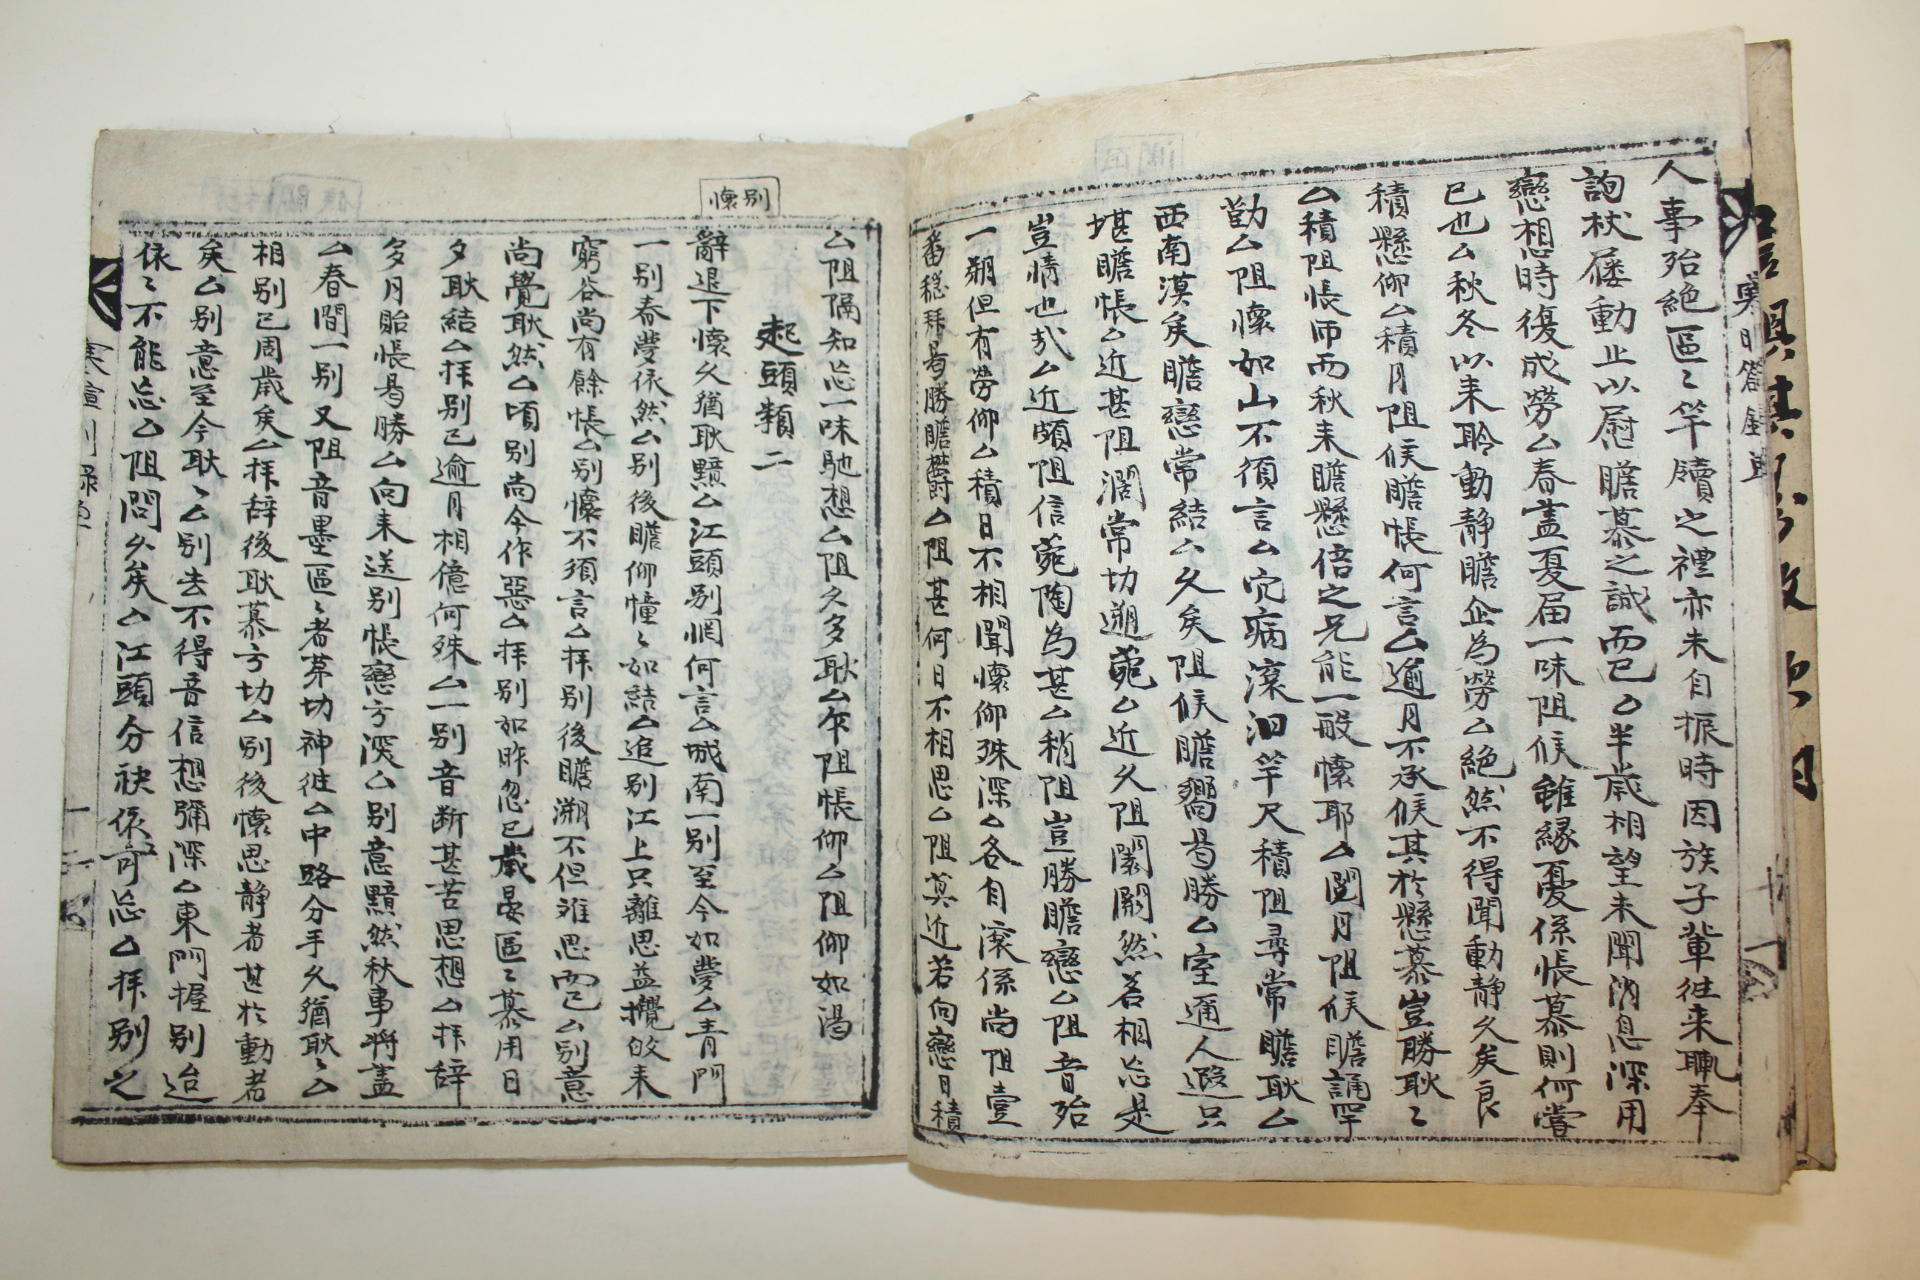 人事殆絶區〻竿牘之禮亦未自振時因族子輩徃来輒奉
詢杖屨動止以慰瞻慕之誠而已厶半歲相望未聞消息深用
戀想時復成勞厶春盡夏届一味阻候雖緣憂係悵慕則何嘗
已也厶秋冬以来聆動靜瞻企為勞厶絶然不得聞動靜久矣良
積懸仰厶積月阻候瞻悵何言厶逾月不承候其於懸慕豈勝耿〻
厶積阻悵而秋来瞻懸倍之兄能一般懷耶厶閱月阻候瞻誦罕
勤厶阻懷如山不須言厶宂病滾汨竿尺積阻尋常瞻耿厶
西南漠矣瞻戀常結厶久矣阻候瞻嚮曷勝厶室邇人遐只
堪瞻悵厶近甚阻濶常切遡菀厶近久阻闊闕然若相忘是
豈情也哉厶近頗阻信菀陶為甚厶稍阻豈勝瞻戀厶阻音殆
一朔但有勞仰厶積日不相聞懷仰殊深厶各自滾係尚阻壹
番穩拜曷勝瞻欝厶阻甚何日不相思厶阻莫近若向戀月積
厶阻隔知忘一味馳想厶阻久多耿厶乍阻悵仰厶阻仰如渴
起頭類二
懷別
辭退下懷久猶耿黯厶江頭別惘何言厶城南一別至今如夢厶青門
一別春夢依然厶別後瞻仰憧〻如結厶追別江上只離思益攪的来
窮谷尚有餘悵厶別懷不須言厶拜別後瞻溯不但难思而已厶別意
尚覺耿然厶頃別尚今作惡厶拜別如昨忽已歲晏區〻慕用日
夕耿結厶拜別已逾月相億何殊厶一別音断甚苦思想厶拜辞
多月貽悵曷勝厶向来送別悵戀方深厶別意黯然秋事將盡
厶春間一別又阻音墨區〻者芽切神徃厶中路分手久猶耿〻厶
相別已周歲矣厶拜辞後耿慕方切厶別後懷思静者甚於動者
矣厶別意至今耿〻厶別去不得音信想彌深厶東門握別迨
依〻不能忘厶阻問久矣厶江頭分袂依〻可忘厶拜別之